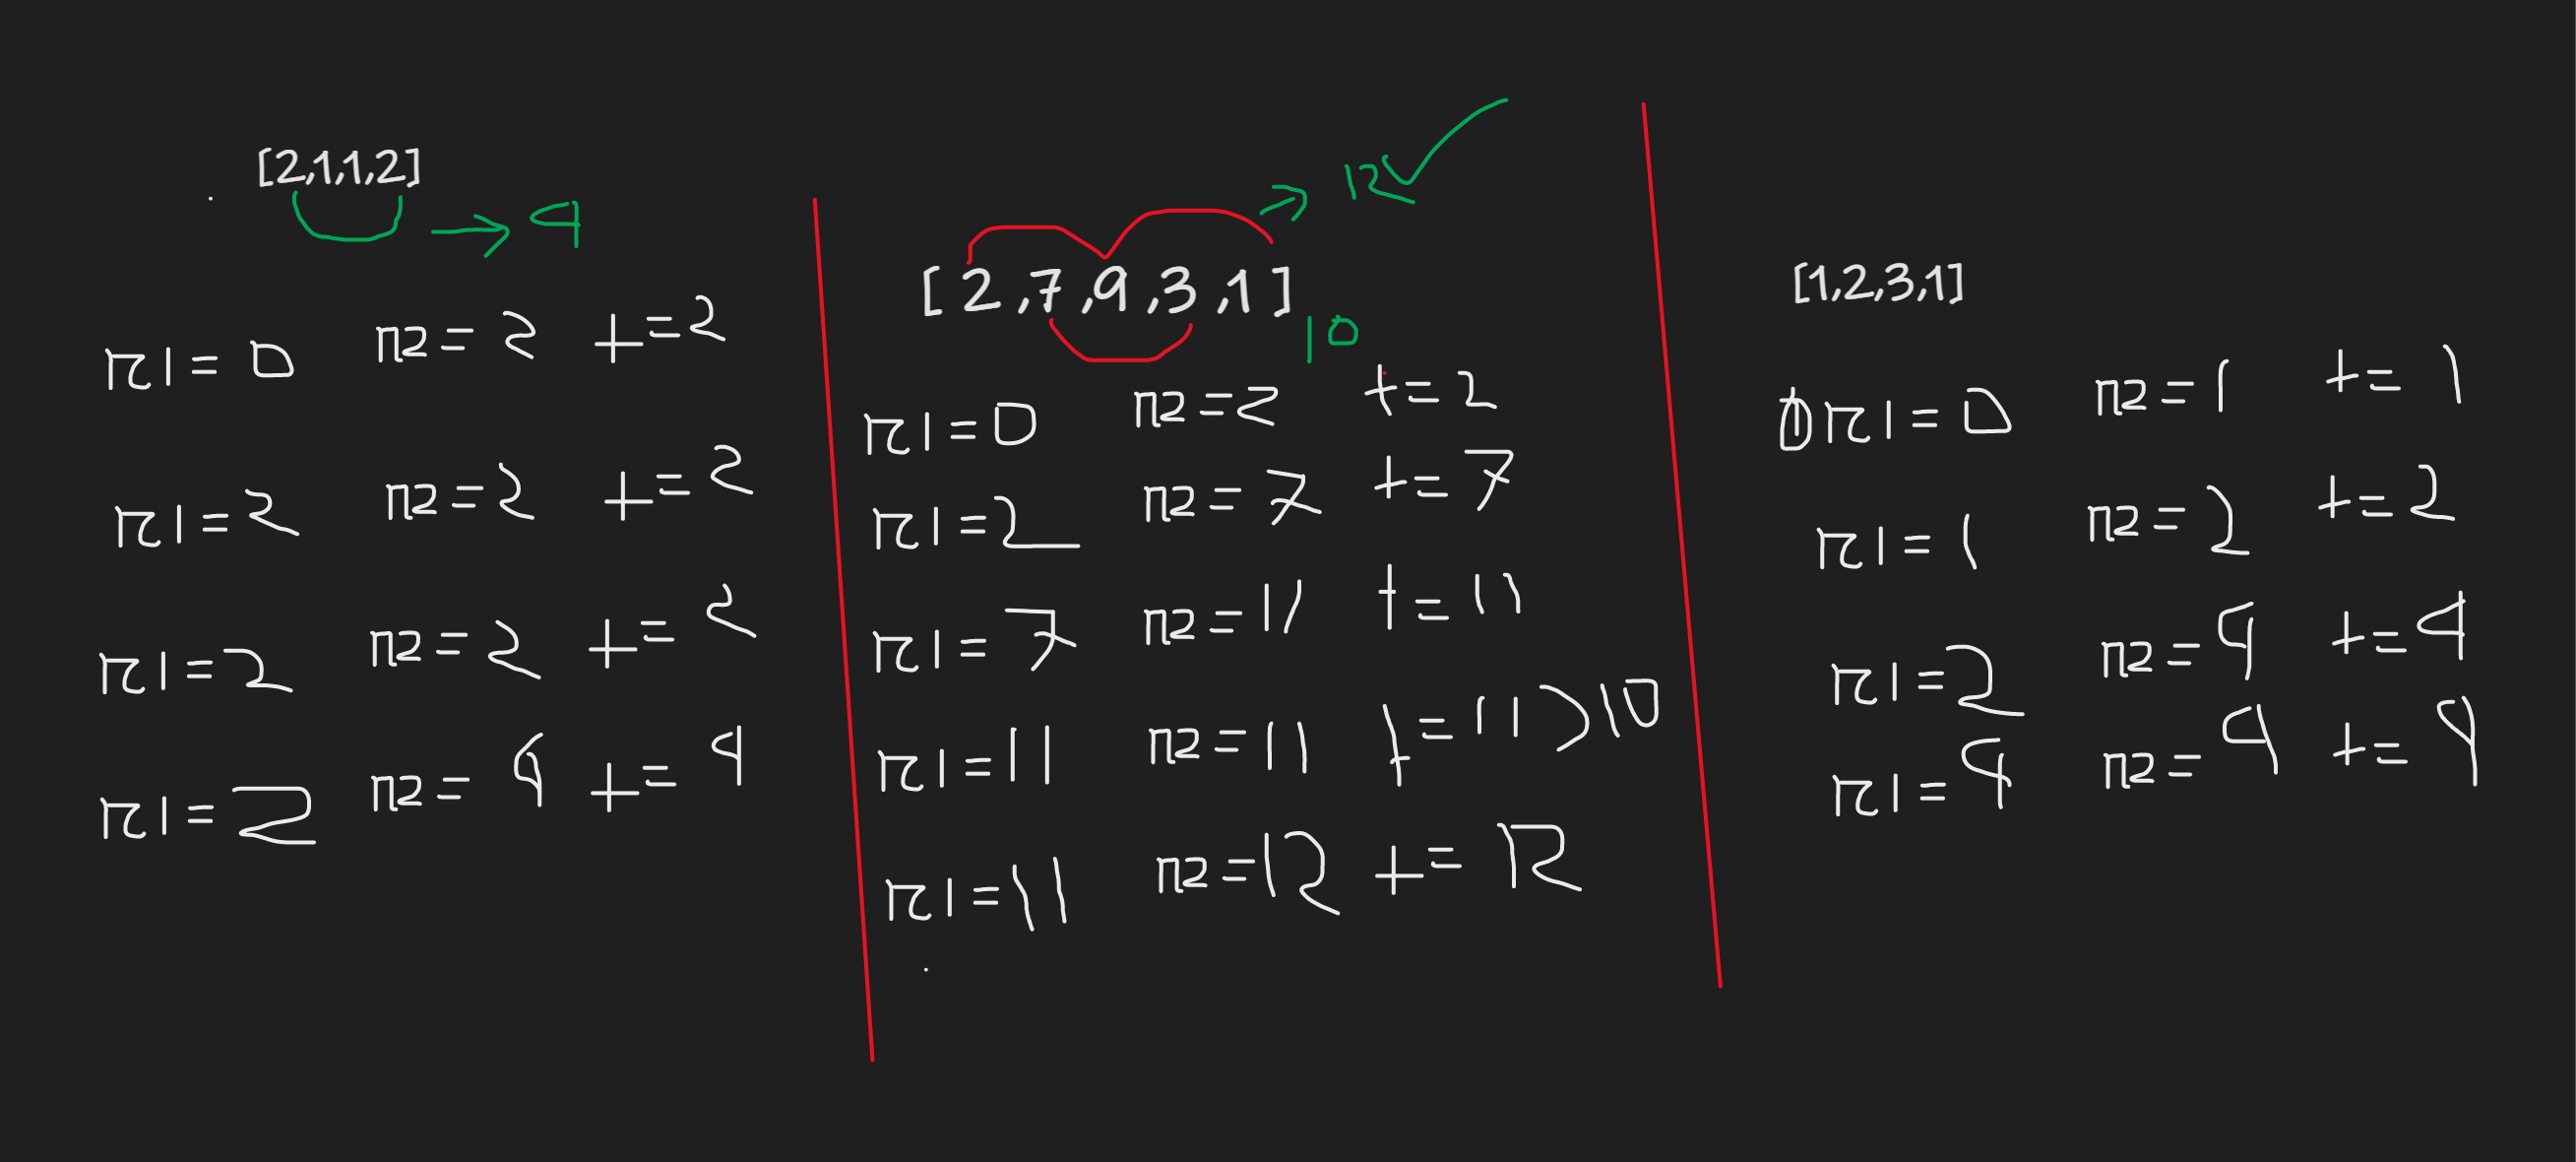 [2,1,1,2]
→ 4
r1 = 0 r2 = 2 t = 2
r1 = 2 r2 = 2 t = 2
r1 = 2 r2 = 2 t = 2
r1 = 2 r2 = 4 t = 4
→ 12 ✓
[2,7,9,3,1]
10
r1 = 0 r2 = 2 t = 2
r1 = 2 r2 = 7 t = 7
r1 = 7 r2 = 11 t = 11
r1 = 11 r2 = 11 t = 11 > 10
r1 = 11 r2 = 12 t = 12
[1,2,3,1]
r1 = 0 r2 = 1 t = 1
r1 = 1 r2 = 2 t = 2
r1 = 2 r2 = 4 t = 4
r1 = 4 r2 = 4 t = 4